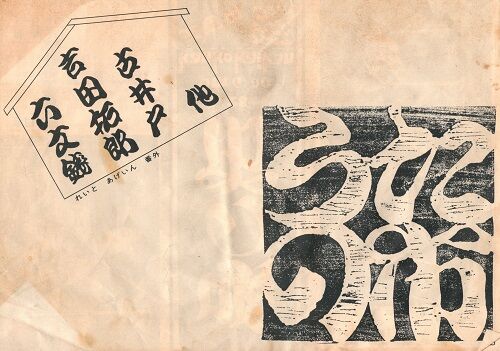 他
古井戸
吉田拓郎
六文銭
れいと あげいん 番外
うた
の市